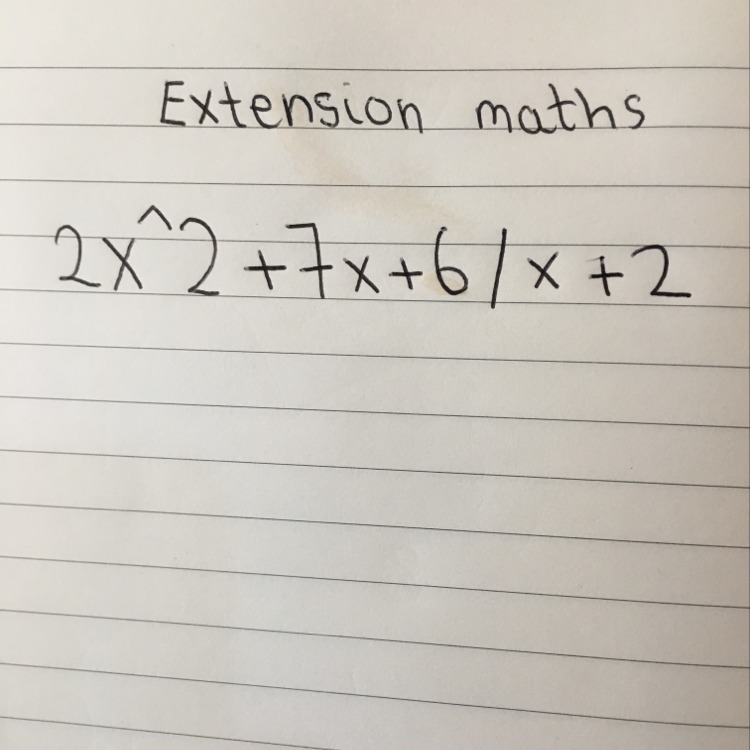 Extension maths
2x^2+7x+6/x+2